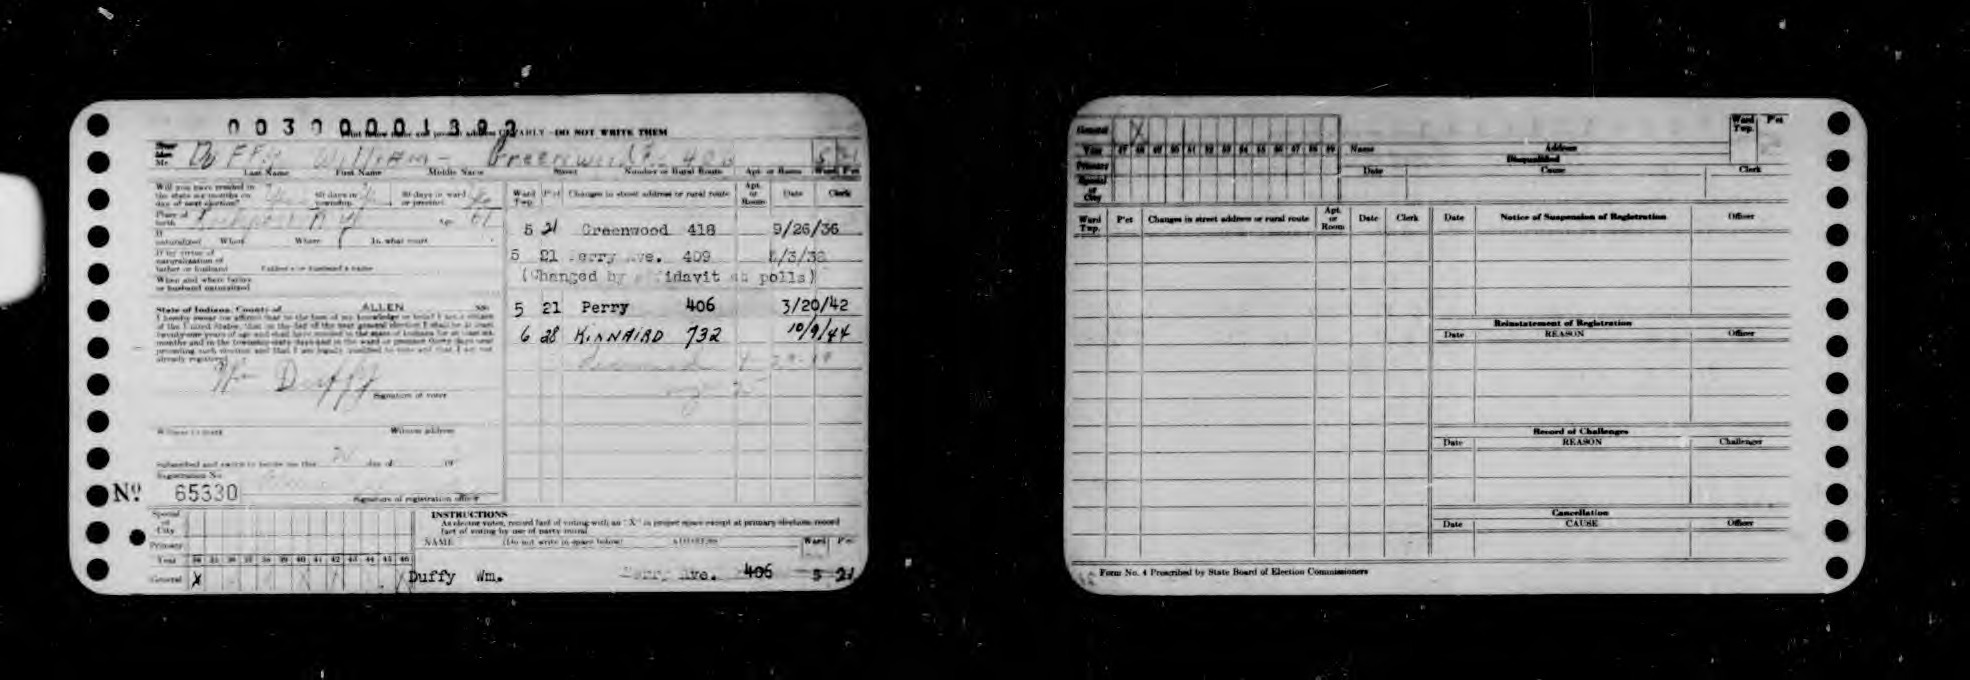 0030000139
CLEARLY - DO NOT WRITE THEM
Mr. DUFFY William - Greenwood 5 21
Last Name First Name Middle Name Street Number or Rural Route Apt. or Room Ward P'ct
Will you have resided in the state six months on day of next election? 60 days in township 30 days in ward or precinct
Place of birth N.Y. Age 61
If naturalized When Where In what court
If by virtue of naturalization of father or husband Father's or husband's name
When and where father or husband naturalized
State of Indiana, County of ALLEN SS:
I hereby swear (or affirm) that to the best of my knowledge or belief I am a citizen
of the United States, that on the day of the next general election I shall be at least
twenty-one years of age and shall have resided in the state of Indiana for at least six
months and in the township sixty days and in the ward or precinct thirty days next
preceding such election and that I am legally qualified to vote and that I am not
already registered.
Wm Duffy
Signature of voter
Witness to mark Witness address
Subscribed and sworn to before me this day of 19
Registration No.
Nº 65330
Signature of registration officer
Ward Twp. P'ct Changes in street address or rural route Apt. or Room Date Clerk
5 21 Greenwood 418 9/26/36
5 21 Perry Ave. 409
(Changed by affidavit at polls)
5 21 Perry 406 3/20/42
6 28 KINNAIRD 732 10/9/44
Special or City
Primary
Year 34 35 36 37 38 39 40 41 42 43 44 45 46
General X
INSTRUCTIONS
As elector votes, record fact of voting with an "X" in proper space except at primary elections record
fact of voting by use of party initial
NAME (Do not write in space below) ADDRESS Ward P'ct
Duffy Wm. Perry Ave. 406 5 21
General X
Year 47 48 49 50 51 52 53 54 55 56 57 58 59 Name Address Ward Twp. P'ct
Primary Disqualified
Special or City Date Cause Clerk
Ward Twp. P'ct Changes in street address or rural route Apt. or Room Date Clerk
Date Notice of Suspension of Registration Officer
Reinstatement of Registration
Date REASON Officer
Record of Challenges
Date REASON Challenger
Cancellation
Date CAUSE Officer
Form No. 4 Prescribed by State Board of Election Commissioners